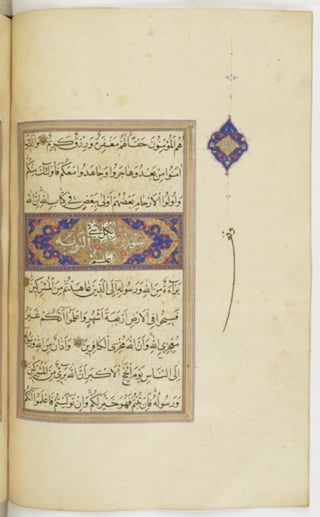 هُمُ الْمُؤْمِنُونَ حَقًّا لَهُمْ مَغْفِرَةٌ وَرِزْقٌ كَرِيمٌ وَالَّذِينَ
اٰمَنُوا مِنْ بَعْدُ وَهَاجَرُوا وَجَاهَدُوا مَعَكُمْ فَأُولٰئِكَ مِنْكُمْ
وَأُولُوا الْأَرْحَامِ بَعْضُهُمْ أَوْلَى بِبَعْضٍ فِي كِتَابِ اللهِ إِنَّ اللهَ
سورة التوبة
بَرَاءَةٌ مِنَ اللهِ وَرَسُولِهِ إِلَى الَّذِينَ عَاهَدْتُمْ مِنَ الْمُشْرِكِينَ
فَسِيحُوا فِي الْأَرْضِ أَرْبَعَةَ أَشْهُرٍ وَاعْلَمُوا أَنَّكُمْ غَيْرُ
مُعْجِزِي اللهِ وَأَنَّ اللهَ مُخْزِي الْكَافِرِينَ وَأَذَانٌ مِنَ اللهِ وَرَسُولِهِ
إِلَى النَّاسِ يَوْمَ الْحَجِّ الْأَكْبَرِ أَنَّ اللهَ بَرِيءٌ مِنَ الْمُشْرِكِينَ
وَرَسُولُهُ فَإِنْ تُبْتُمْ فَهُوَ خَيْرٌ لَكُمْ وَإِنْ تَوَلَّيْتُمْ فَاعْلَمُوا أَنَّكُمْ
وقف